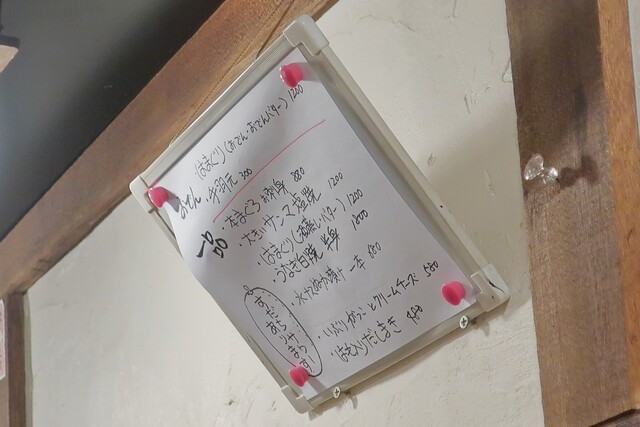 おでん
はまぐり(おでん・おでんバター) 1200
手羽元 300
一品
・本まぐろ お刺身 880
・大きいサーマ塩焼 1200
はまぐり(酒蒸し・バター) 1200
・うなぎ白焼 半身 1800
・水ナスぬか漬け 一本 880
・いぶりがっことクリームチーズ 580
はも入りだしまき 980
すだち
あります